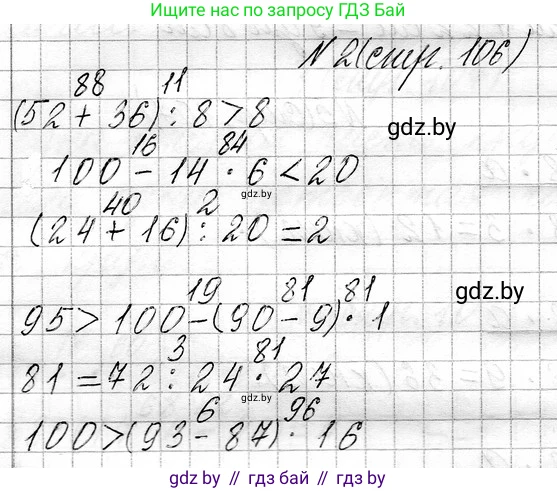 Ищите нас по запросу ГДЗ Бай
N 2 (стр. 106)
88 11
(52 + 36) : 8 > 8
gdz.by
16 84
100 - 14 · 6 < 20
gdz.by
40 2
(24 + 16) : 20 = 2
19 81 81
gdz.by
95 > 100 - (90 - 9) · 1
3 81
81 = 72 : 24 · 27
gdz.by
6 96
100 > (93 - 87) · 16
gdz.by // гдз бай // гдз бу